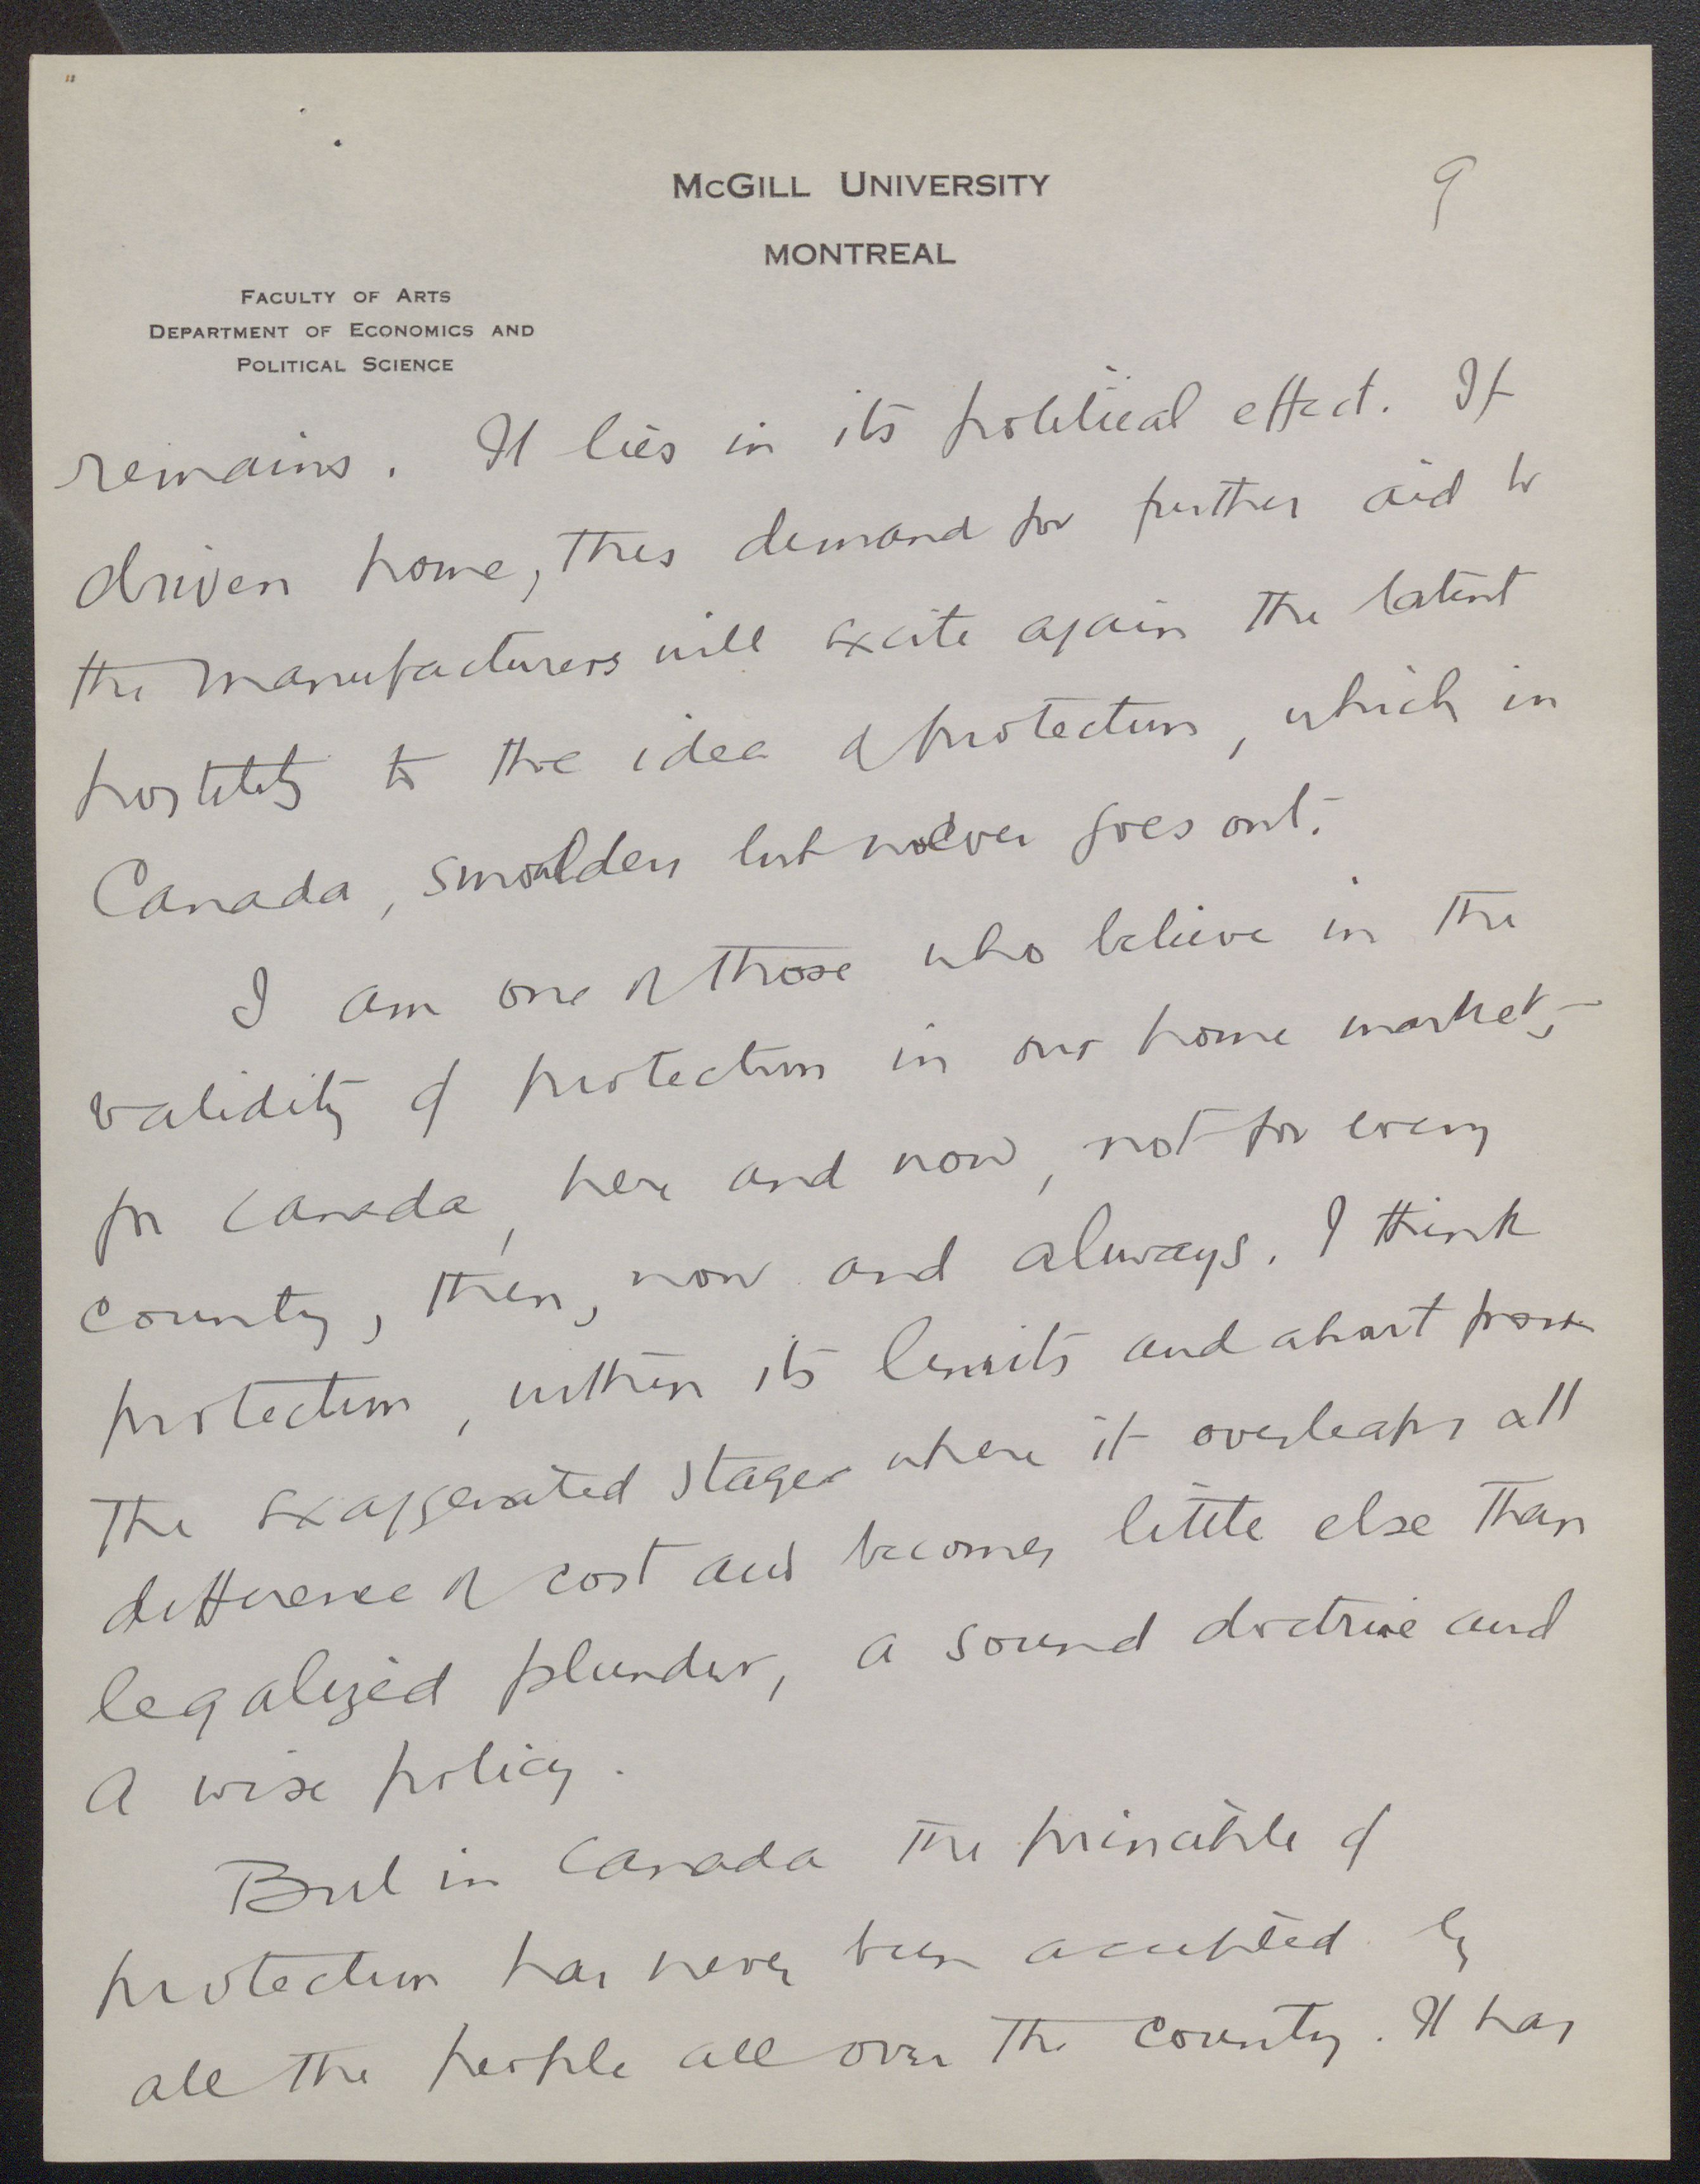 McGill University
9
MONTREAL
Faculty of Arts
Department of Economics and
Political Science
remains. It lies in its political effect. If
driven home, this demand for further aid to
the manufacturers will excite again the latent
hostility to the idea of protection, which in
Canada, smoulders but never goes out.
I am one of those who believe in the
validity of protection in our home market, –
for Canada, here and now, not for every
country, then, now and always. I think
protection, within its limits and apart from
the exaggerated stages where it overleaps all
difference of cost and becomes little else than
legalized plunder, a sound doctrine and
a wise policy.
But in Canada the principle of
protection has never been accepted by
all the people all over the country. It has